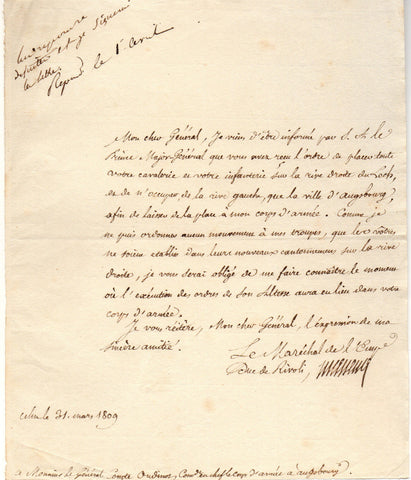 Répondu le 1er avril
Mon cher Général, Je viens d'être informé par S. A. le
Prince Major Général que vous avez reçu l'ordre de placer toute
votre cavalerie et votre infanterie sur la rive droite du Lech,
et de n'occuper de la rive gauche, que la ville d'Augsbourg,
afin de laisser de la place à mon corps d'armée. Comme je
ne puis ordonner aucun mouvement à mes troupes, que les vôtres
ne soient établies dans leurs nouveaux cantonnements sur la rive
droite, je vous serai obligé de me faire connaître le moment
où l'exécution des ordres de Son Altesse aura eu lieu dans votre
corps d'armée.
Je vous réitère, Mon cher Général, l'expression de ma
sincère amitié.
Le Maréchal de l'Empre
Duc de Rivoli, Massena
le 31. mars 1809
A Monsieur le Général Comte Oudinot, Comdt en chef le corps d'armée à augsbourg.